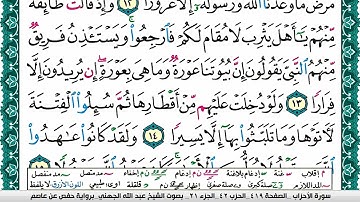 مَّرَضٌ مَّا وَعَدَنَا ٱللَّهُ وَرَسُولُهُۥٓ إِلَّا غُرُورًا ١٢ وَإِذْ قَالَت طَّآئِفَةٌ
مِّنْهُمْ يَٰٓأَهْلَ يَثْرِبَ لَا مُقَامَ لَكُمْ فَٱرْجِعُوا۟ ۚ وَيَسْتَـْٔذِنُ فَرِيقٌ
مِّنْهُمُ ٱلنَّبِىَّ يَقُولُونَ إِنَّ بُيُوتَنَا عَوْرَةٌ وَمَا هِىَ بِعَوْرَةٍ ۖ إِن يُرِيدُونَ إِلَّا
فِرَارًا ١٣ وَلَوْ دُخِلَتْ عَلَيْهِم مِّنْ أَقْطَارِهَا ثُمَّ سُئِلُوا۟ ٱلْفِتْنَةَ
لَءَاتَوْهَا وَمَا تَلَبَّثُوا۟ بِهَآ إِلَّا يَسِيرًا ١٤ وَلَقَدْ كَانُوا۟ عَٰهَدُوا۟
سورة الأحزاب الصفحة ٤١٩ الحزب ٤٢ الجزء ٢١ بصوت الشيخ عبد الله الجهني برواية حفص عن عاصم